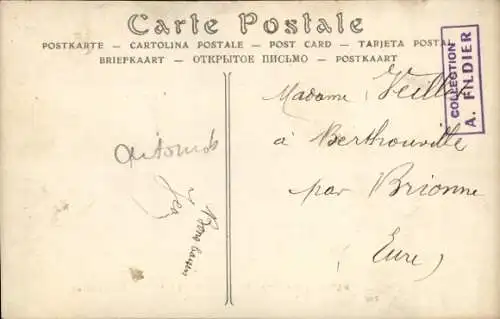 Carte Postale
POSTKARTE — CARTOLINA POSTALE — POST CARD — TARJETA POSTAL
BRIEFKAART — ОТКРЫТОЕ ПИСЬМО — POSTKAART
COLLECTION
A. FILDIER
Madame Veiller
à Berthouville
par Brionne
(Eure)